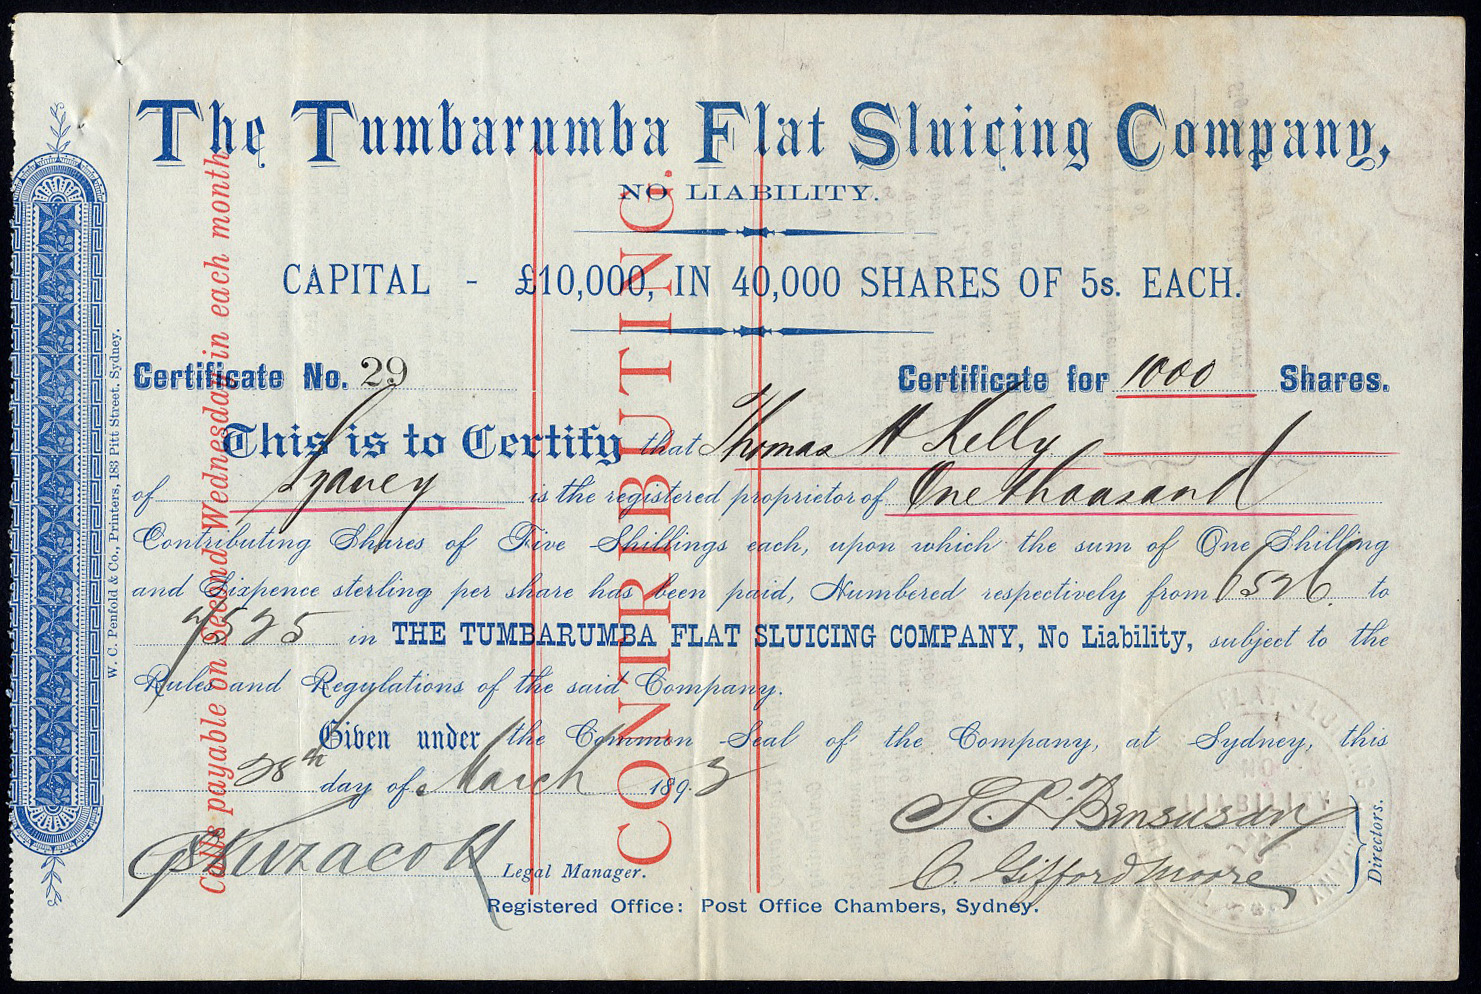 The Tumbarumba Flat Sluicing Company,
NO LIABILITY.
CAPITAL - £10,000, IN 40,000 SHARES OF 5s. EACH.
Certificate No. 29 Certificate for 1000 Shares.
This is to Certify that Thomas H Kelly
of Sydney is the registered proprietor of One thousand
Contributing Shares of Five Shillings each, upon which the sum of One Shilling
and Sixpence sterling per share has been paid, Numbered respectively from 6526 to
7525 in THE TUMBARUMBA FLAT SLUICING COMPANY, No Liability, subject to the
Rules and Regulations of the said Company.
Given under the Common Seal of the Company, at Sydney, this
28th day of March 1893
S. L. Bensusan
C. Gifford Moore
Directors.
Legal Manager.
Registered Office: Post Office Chambers, Sydney.
CONTRIBUTING.
Calls payable on Second Wednesday in each month
W. C. Penfold & Co., Printers, 183 Pitt Street, Sydney.
FLAT
NO
LIABILITY